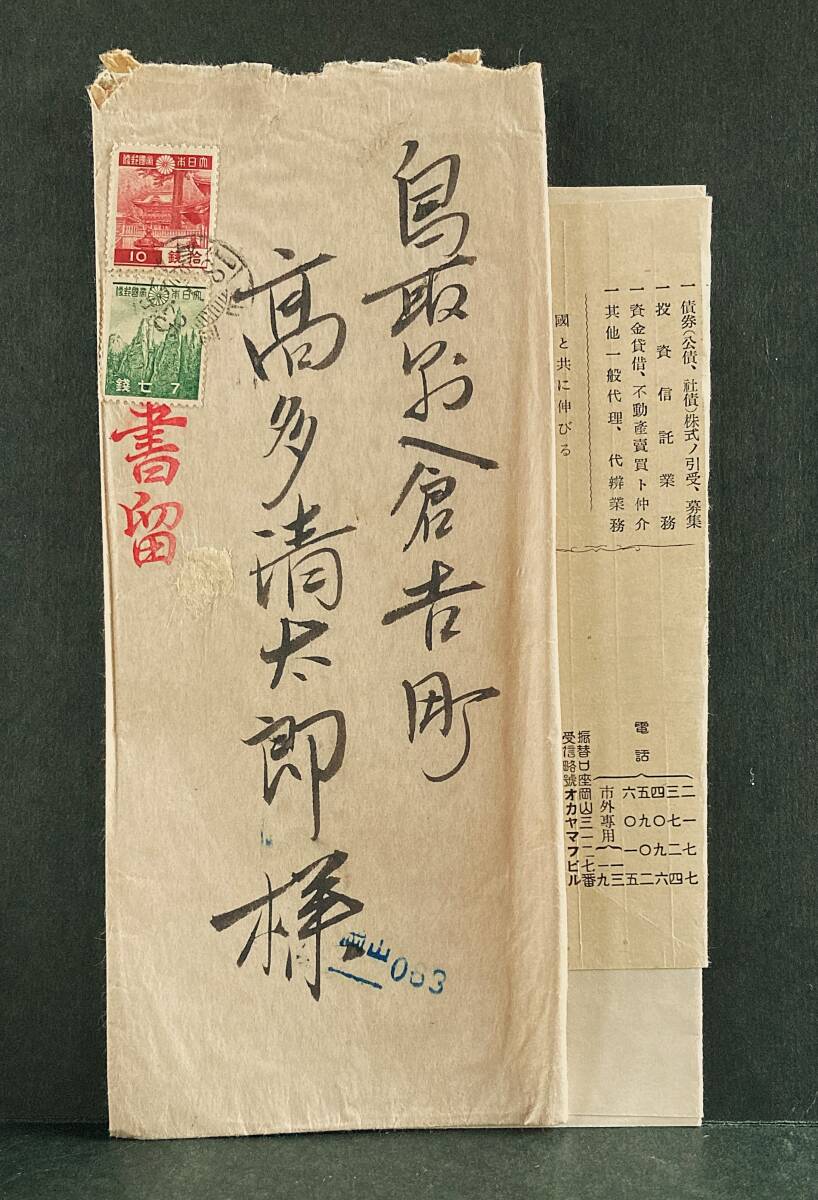 鳥取縣倉吉町
高多清太郎様
書留
大日本帝國郵便
拾錢
10
大日本帝國郵便
7
七錢
岡山
083
一債券(公債、社債)株式ノ引受、募集
一投資信託業務
一資金貸借、不動產賣買ト仲介
一其他一般代理、代辨業務
國と共に伸びる
電話
二一七七
三七二四
四〇九六
五九〇二
六〇一五
市外專用
一三
一九
振替口座岡山三一二七番
受信略號オカヤマフビル